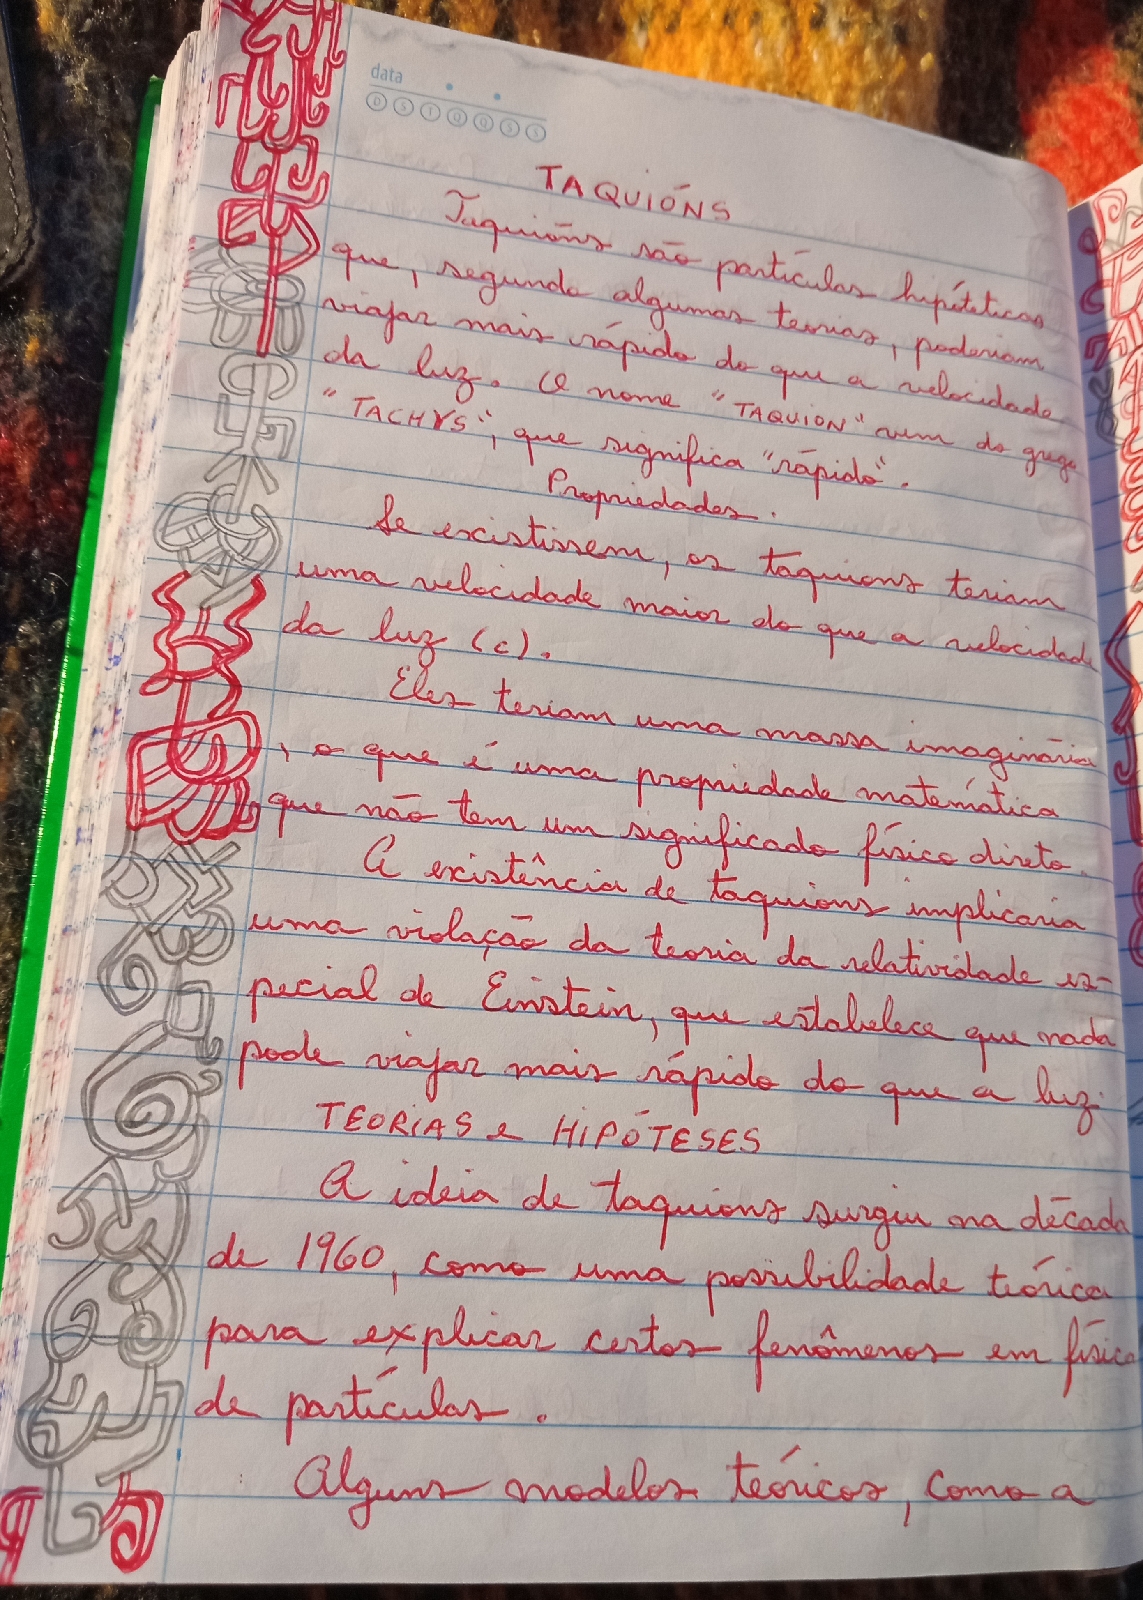 data
D S T Q Q S S
TAQUIÓNS
Taquións são partículas hipótéticas
que, segundo algumas teorias, poderiam
viajar mais rápido do que a velocidade
da luz. O nome "TAQUION" vem do grego
"TACHYS", que significa "rápido".
Propriedades.
Se existissem, os taquions teriam
uma velocidade maior do que a velocidade
da luz (c).
Eles teriam uma massa imaginária
, o que é uma propriedade matemática
que não tem um significado físico direto.
A existência de taquions implicaria
uma violação da teoria da relatividade es-
pecial de Einstein, que estabelece que nada
pode viajar mais rápido do que a luz.
TEORIAS e HIPÓTESES
A ideia de taquions surgiu na década
de 1960, como uma possibilidade teórica
para explicar certos fenômenos em física
de partículas.
Alguns modelos teóricos, como a